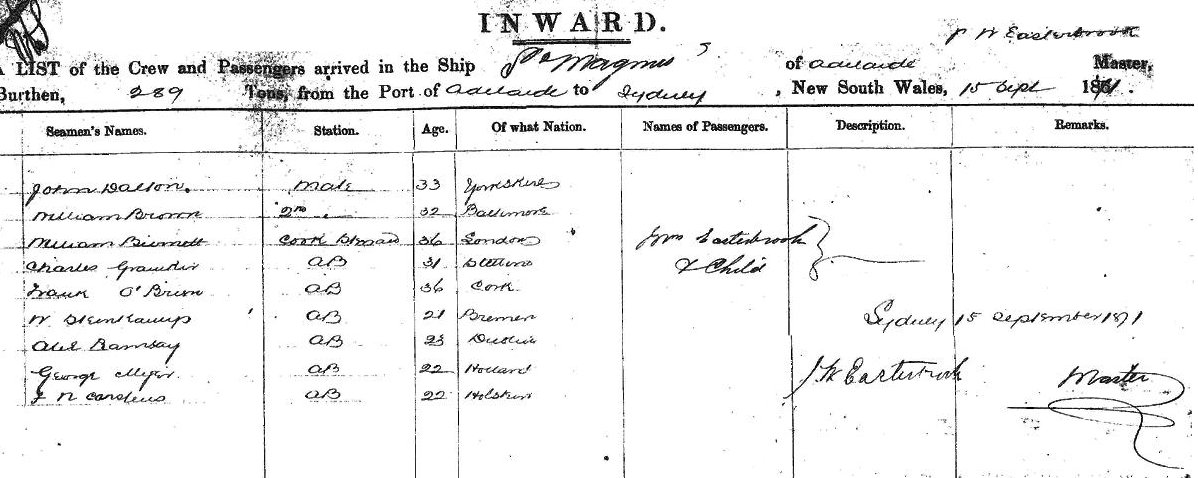 INWARD.
J W Easterbrook
A LIST of the Crew and Passengers arrived in the Ship St Magnus of Adelaide Master,
Burthen, 289 Tons, from the Port of Adelaide to Sydney, New South Wales, 15 Sept 1871.
Seamen's Names. Station. Age. Of what Nation. Names of Passengers. Description. Remarks.
John Dalton. Mate 33 Yorkshire
William Brown 2nd " 32 Baltimore
William Cook Steward 36 London Mrs Easterbrook
Charles AB 31 Stettin & Child
Frank O'Brien AB 36 Cork
W Steinkamp AB 21 Bremen Sydney 15 September 1871
Ramsay AB 23 Dublin
George Meyer AB 22 Holland J W Easterbrook Master
J N AB 22 Holstein